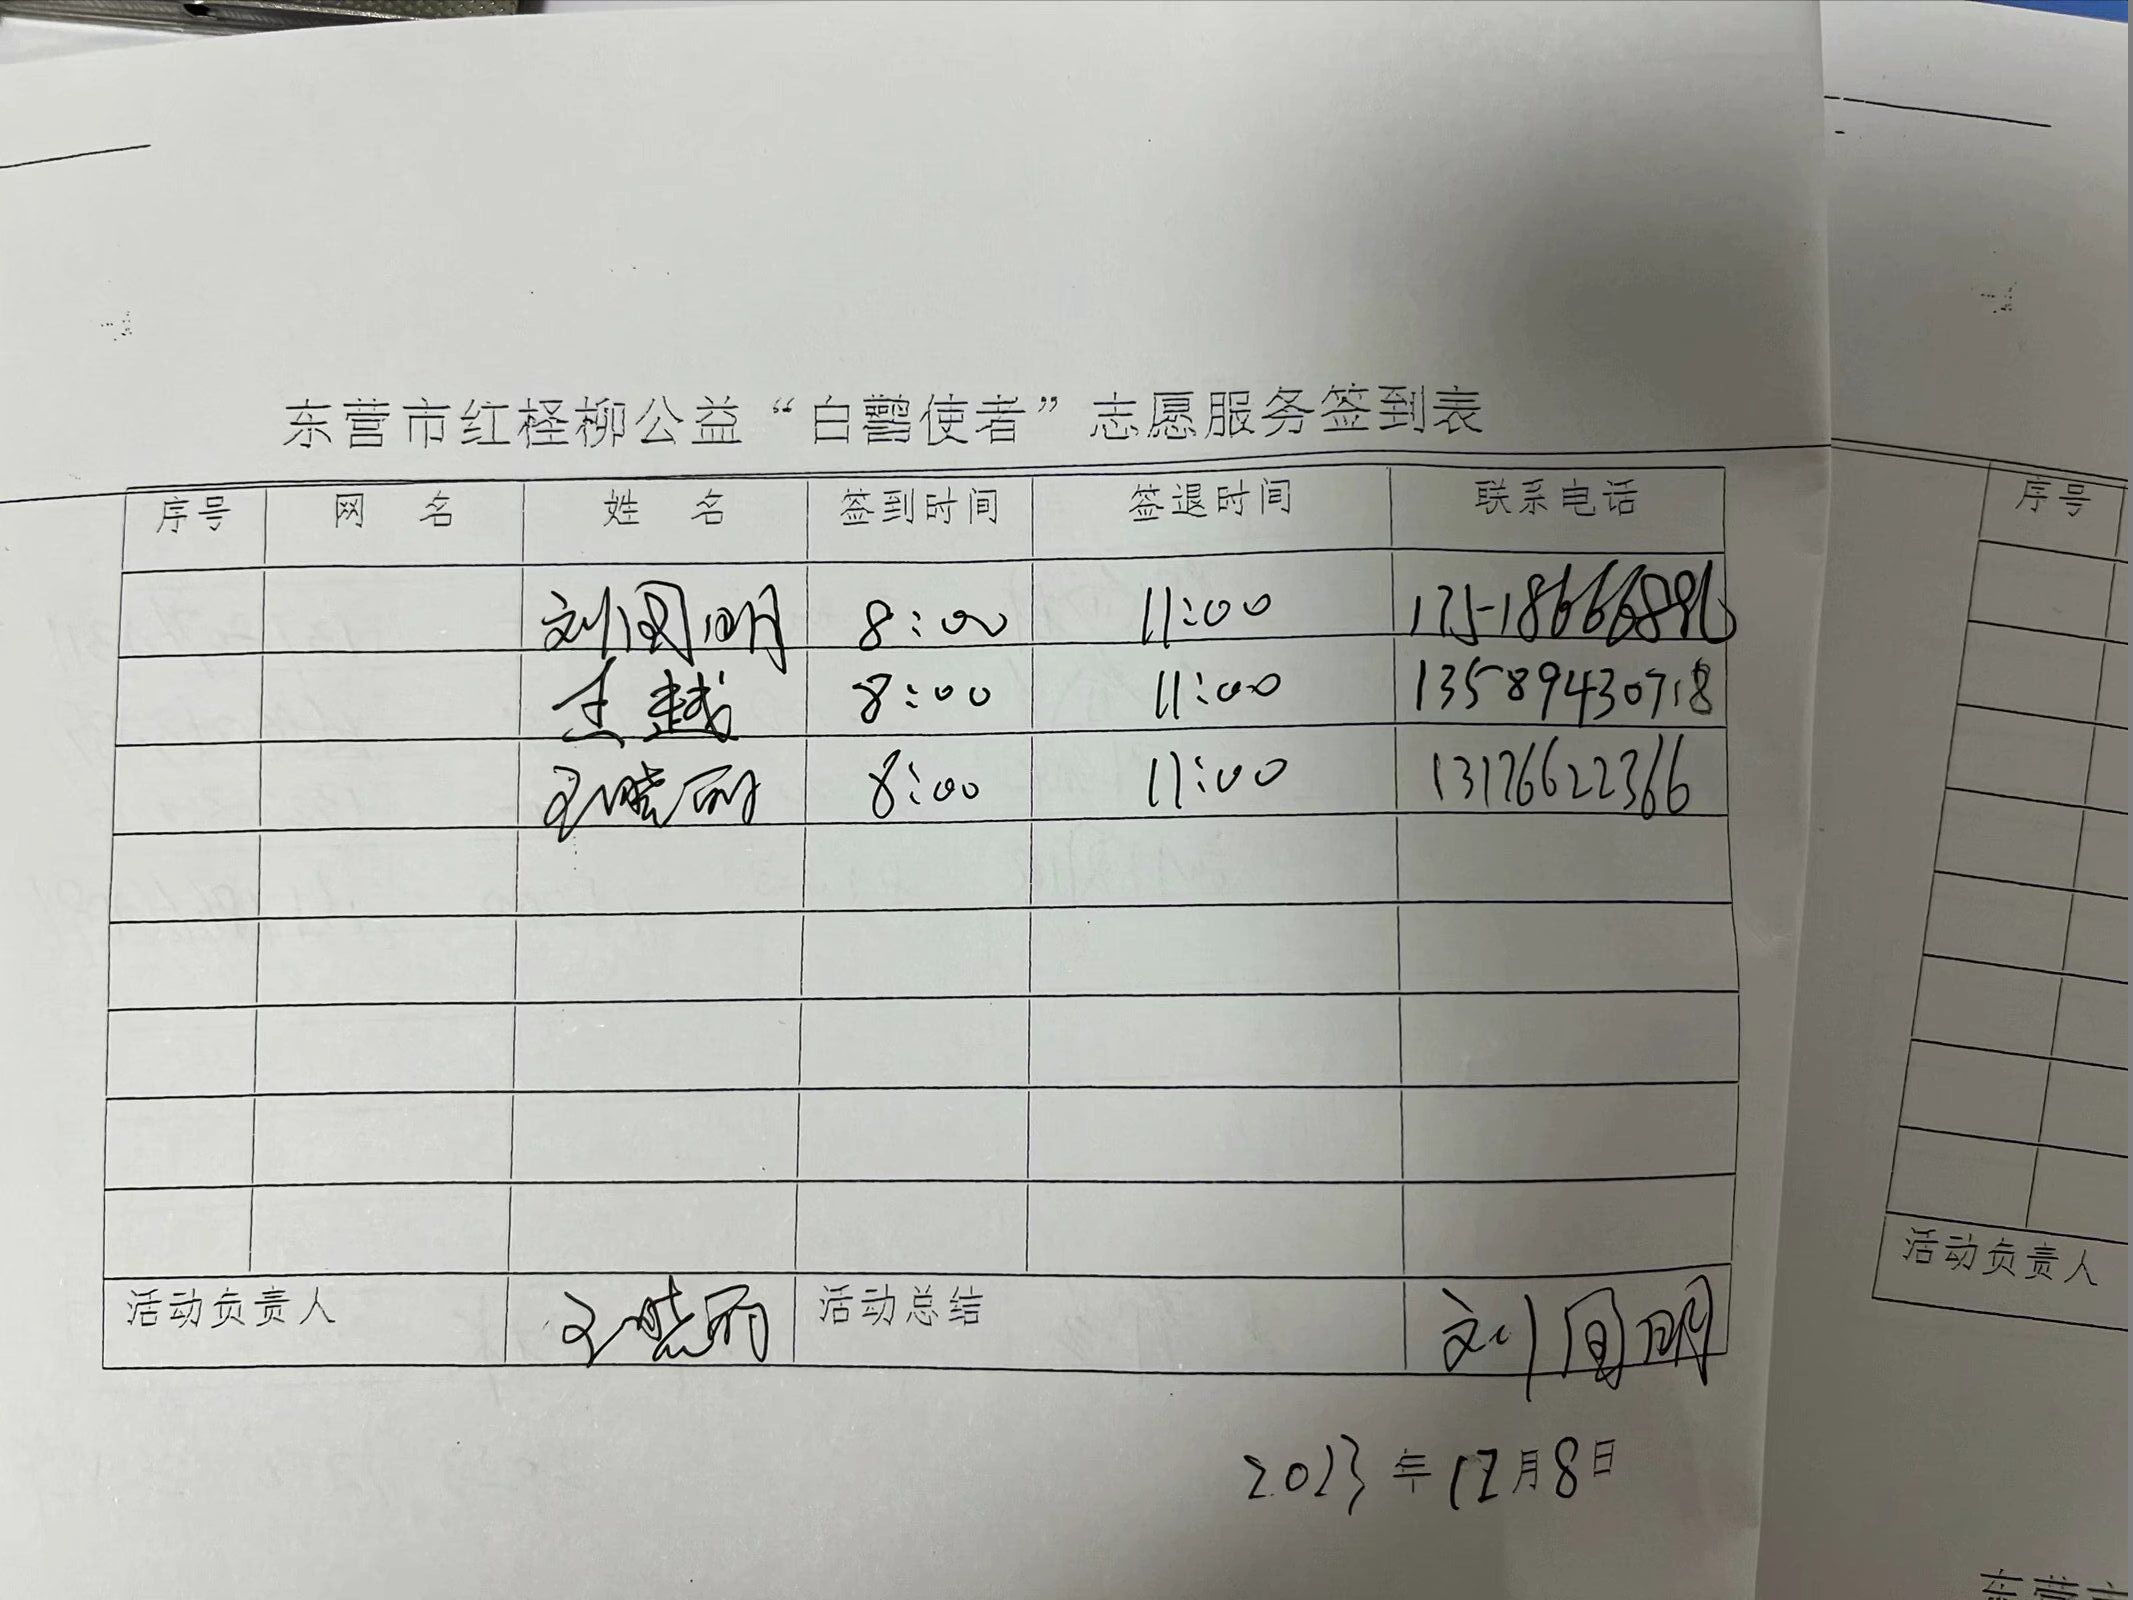 东营市红柽柳公益“白鹳使者”志愿服务签到表
序号 网 名 姓 名 签到时间 签退时间 联系电话
刘国明 8:00 11:00
王越 8:00 11:00 13589430718
王晓丽 8:00 11:00 13176622366
活动负责人 王晓丽 活动总结 刘国明
2023年12月8日
序号
活动负责人
东营市